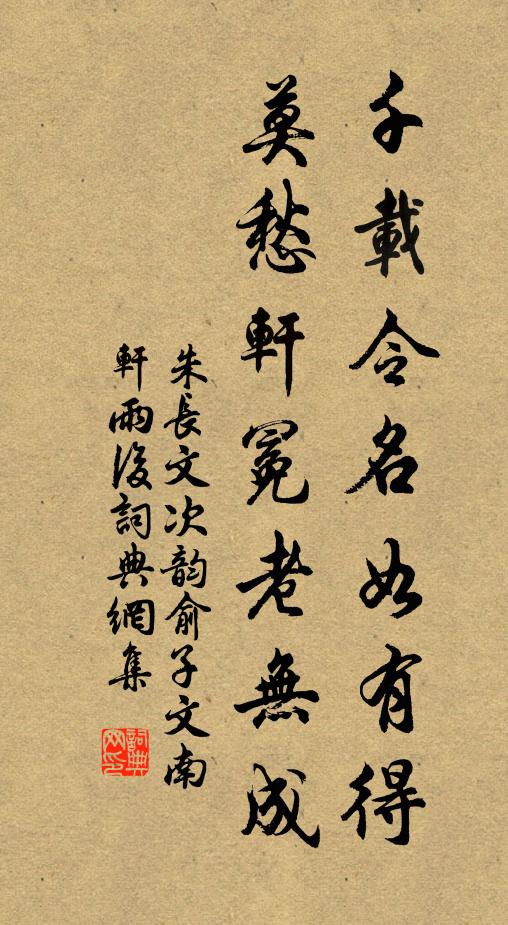 千載令名如有得
莫愁軒冕老無成
朱長文次韵俞子文南
軒雨後詞典網集
詞典網印